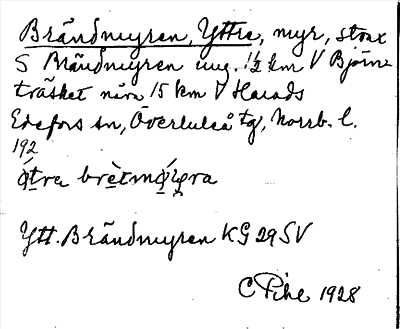 Brändmyren, Yttre, myr, strax
S Brändmyren ung. 1½ km V Björn-
träsket nära 15 km V Harads
Edefors sn, Överluleå tg, Norrb. l.
192
Ytt. Brändmyren KG 29 SV
C Pihe 1928